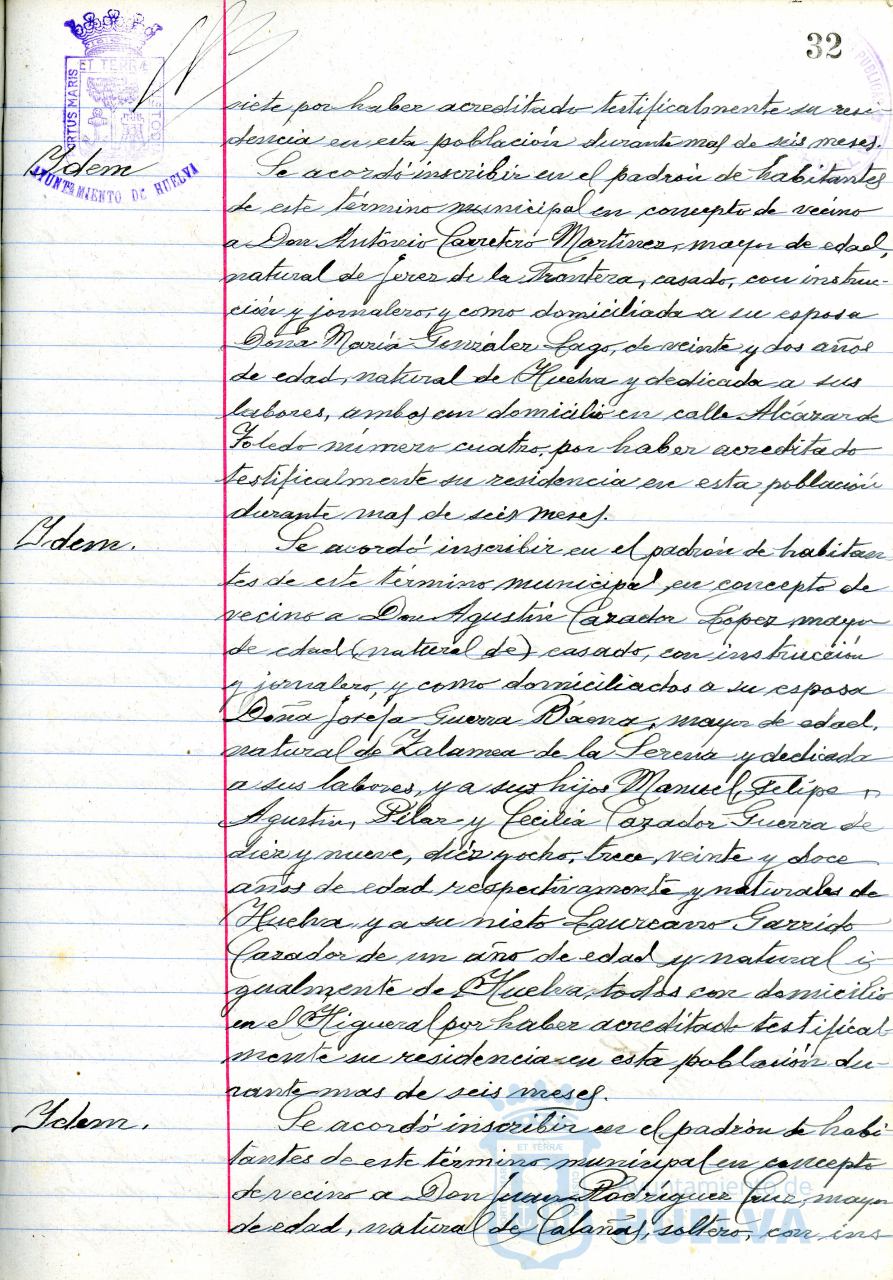 32
PORTUS MARIS ET TERRÆ CUSTODIA
AYUNTAMIENTO DE HUELVA
siete por haber acreditado testificalmente su resi-
dencia en esta población durante mas de seis meses.
Idem
Se acordó inscribir en el padrón de habitantes
de este término municipal en concepto de vecino
a Don Antonio Carretero Martínez, mayor de edad,
natural de Jerez de la Frontera, casado, con instruc-
ción y jornalero, y como domiciliada a su esposa
Doña María González Lago, de veinte y dos años
de edad, natural de Huelva y dedicada a sus
labores, ambos con domicilio en calle Alcázar de
Toledo número cuatro, por haber acreditado
testificalmente su residencia en esta población
durante mas de seis meses.
Idem.
Se acordó inscribir en el padrón de habitan-
tes de este término municipal, en concepto de
vecino a Don Agustín Cazador López, mayor
de edad (natural de) casado, con instrucción
y jornalero, y como domiciliados a su esposa
Doña Josefa Guerra Báena, mayor de edad,
natural de Zalamea de la Serena y dedicada
a sus labores, y a sus hijos Manuel, Felipe,
Agustín, Pilar y Cecilia Cazador Guerra de
diez y nueve, diez y ocho, trece, veinte y doce
años de edad respectivamente y naturales de
Huelva, y a su nieto Laureano Garrido
Cazador de un año de edad y natural i-
gualmente de Huelva, todos con domicilio
en el Higueral por haber acreditado testifical-
mente su residencia en esta población du-
rante mas de seis meses.
Idem.
Se acordó inscribir en el padrón de habi-
tantes de este término municipal en concepto
de vecino a Don Juan Rodríguez Cruz, mayor
de edad, natural de Calañas, soltero, con ins
ET TERRÆ
Ayuntamiento de
HUELVA